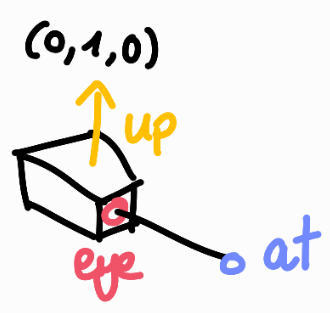 (0,1,0)
up
eye
at